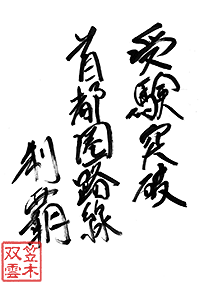 受験突破
首都圏路線
制覇
笠木
双雲